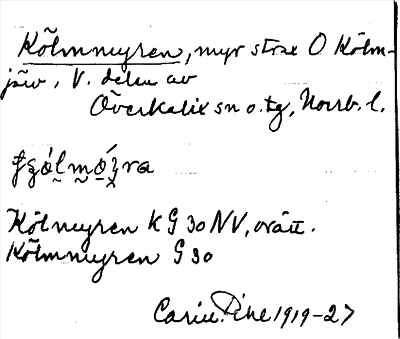 Kölmmyren, myr strax O Kölm-
järv, V. delen av
Överkalix sn o. tg, Norrb. l.
Kölmyren K G 30 NV, orätt.
Kölmmyren G 30
Carin Pihl 1919-27